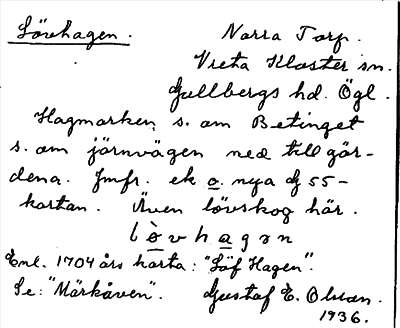 Lövhagen. Norra Torp.
Vreta Kloster sn.
Gullbergs hd. Ögl.
Hagmarken s. om Betinget
s. om järnvägen ned till går-
dena. Jmfr. ek o. nya G 55-
kartan. Även lövskog här.
lòvhagən
Enl. 1704 års karta: "Löf Hagen".
Se: "Märkåven". Gustaf E. Olsson.
1936.